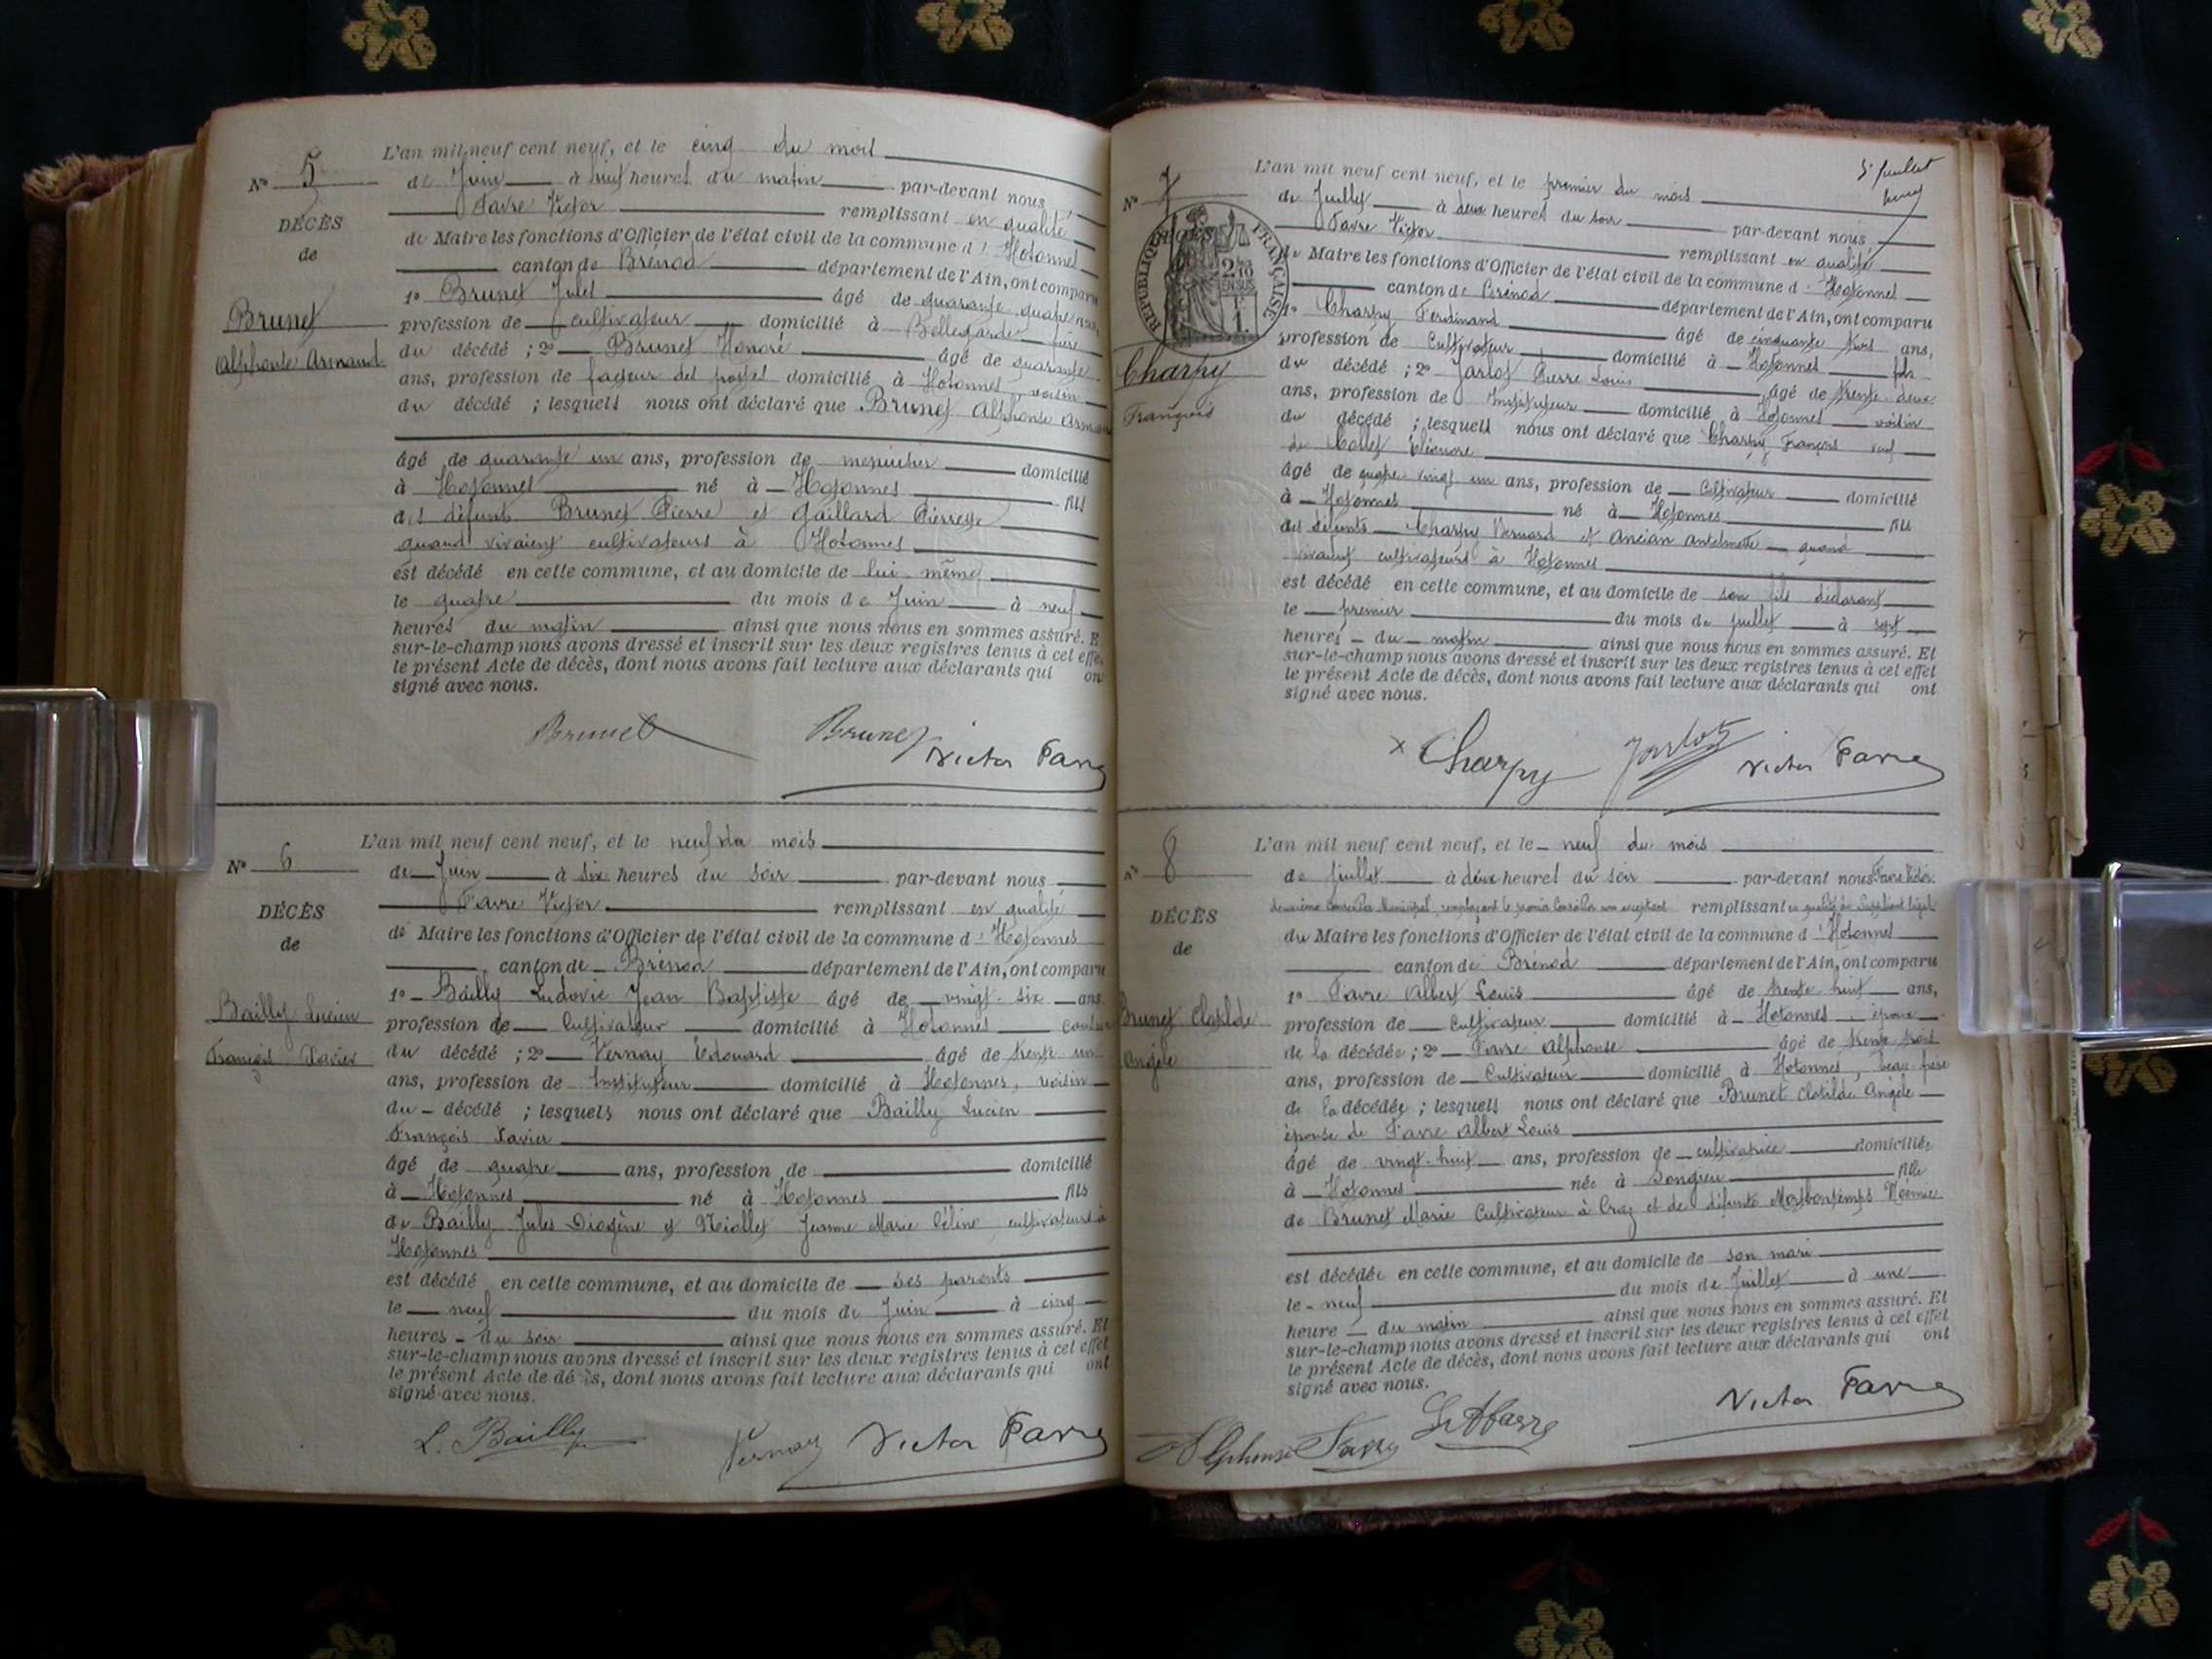 N° 5
DÉCÈS
de
Brunet
Alphonse Armand
L'an mil neuf cent neuf, et le cinq du mois
de Juin à huit heures du matin par-devant nous
Favre Victor remplissant en qualité
de Maire les fonctions d'Officier de l'état civil de la commune d' Hotonnes
canton de Brénod département de l'Ain, ont comparu
1° Brunet Jules âgé de quarante quatre ans,
profession de cultivateur domicilié à Bellegarde frère
du décédé ; 2° Brunet Honoré âgé de quarante
ans, profession de facteur des postes domicilié à Hotonnes voisin
du décédé ; lesquels nous ont déclaré que Brunet Alphonse Armand
âgé de quarante un ans, profession de menuisier domicilié
à Hotonnes né à Hotonnes fils
des défunts Brunet Pierre et Gaillard Pierrette
quand vivaient cultivateurs à Hotonnes
est décédé en cette commune, et au domicile de lui-même
le quatre du mois de Juin à neuf
heures du matin ainsi que nous nous en sommes assuré. E
sur-le-champ nous avons dressé et inscrit sur les deux registres tenus à cet effe
le présent Acte de décès, dont nous avons fait lecture aux déclarants qui on
signé avec nous.
Brunet Brunet Victor Favre
N° 6
DÉCÈS
de
Bailly Lucien
François Xavier
L'an mil neuf cent neuf, et le neuf du mois
de Juin à six heures du soir par-devant nous
Favre Victor remplissant en qualité
de Maire les fonctions d'Officier de l'état civil de la commune d' Hotonnes
canton de Brénod département de l'Ain, ont comparu
1° Bailly Ludovic Jean Baptiste âgé de vingt-six ans
profession de Cultivateur domicilié à Hotonnes cousin
du décédé ; 2° Vernay Edouard âgé de trente un
ans, profession de Instituteur domicilié à Hotonnes, voisin
du décédé ; lesquels nous ont déclaré que Bailly Lucien
François Xavier
âgé de quatre ans, profession de domicilié
à Hotonnes né à Hotonnes fils
de Bailly Jules Diogène et Jeanne Marie Céline cultivateurs à
Hotonnes
est décédé en cette commune, et au domicile de ses parents
le neuf du mois de Juin à cinq
heures du soir ainsi que nous nous en sommes assuré. Et
sur-le-champ nous avons dressé et inscrit sur les deux registres tenus à cet effet
le présent Acte de décès, dont nous avons fait lecture aux déclarants qui ont
signé avec nous.
L. Bailly Vernay Victor Favre
5 Juillet
N° 7
RÉPUBLIQUE FRANÇAISE
2/10 EN SUS
1F
Charpy
François
L'an mil neuf cent neuf, et le premier du mois
de Juillet à deux heures du soir par-devant nous
Favre Victor remplissant en qualité
de Maire les fonctions d'Officier de l'état civil de la commune d' Hotonnes
canton de Brénod département de l'Ain, ont comparu
1° Charpy Ferdinand âgé de cinquante trois ans,
profession de Cultivateur domicilié à Hotonnes fils
du décédé ; 2° Jarlot Pierre Louis âgé de trente-deux
ans, profession de Instituteur domicilié à Hotonnes voisin
du décédé ; lesquels nous ont déclaré que Charpy François veuf
de Collet Eléonore
âgé de quatre vingt un ans, profession de Cultivateur domicilié
à Hotonnes né à Hotonnes fils
des défunts Charpy Bernard et Ancian Anthelmette quand
vivaient cultivateurs à Hotonnes
est décédé en cette commune, et au domicile de son fils déclarant
le premier du mois de juillet à sept
heures du matin ainsi que nous nous en sommes assuré. Et
sur-le-champ nous avons dressé et inscrit sur les deux registres tenus à cet effet
le présent Acte de décès, dont nous avons fait lecture aux déclarants qui ont
signé avec nous.
x Charpy Jarlot Victor Favre
N° 8
DÉCÈS
de
Brunet Clotilde
Angèle
L'an mil neuf cent neuf, et le neuf du mois
de juillet à deux heures du soir par-devant nous Favre Victor
deuxième Conseiller Municipal, remplaçant le premier Conseiller non acceptant remplissant en qualité de Suppléant légal
du Maire les fonctions d'Officier de l'état civil de la commune d' Hotonnes
canton de Brénod département de l'Ain, ont comparu
1° Favre Albert Louis âgé de trente-huit ans,
profession de Cultivateur domicilié à Hotonnes, époux
de la décédée ; 2° Favre Alphonse âgé de trente trois
ans, profession de Cultivateur domicilié à Hotonnes, beau-frère
de la décédée ; lesquels nous ont déclaré que Brunet Clotilde Angèle
épouse de Favre Albert Louis
âgé de vingt-huit ans, profession de cultivatrice domiciliée
à Hotonnes née à Songieu fille
de Brunet Marie Cultivateur à Craz et de défunte Monbontemps Noémie
est décédée en cette commune, et au domicile de son mari
le neuf du mois de Juillet à une
heure du matin ainsi que nous nous en sommes assuré. Et
sur-le-champ nous avons dressé et inscrit sur les deux registres tenus à cet effet
le présent Acte de décès, dont nous avons fait lecture aux déclarants qui ont
signé avec nous.
Alphonse Favre Victor Favre